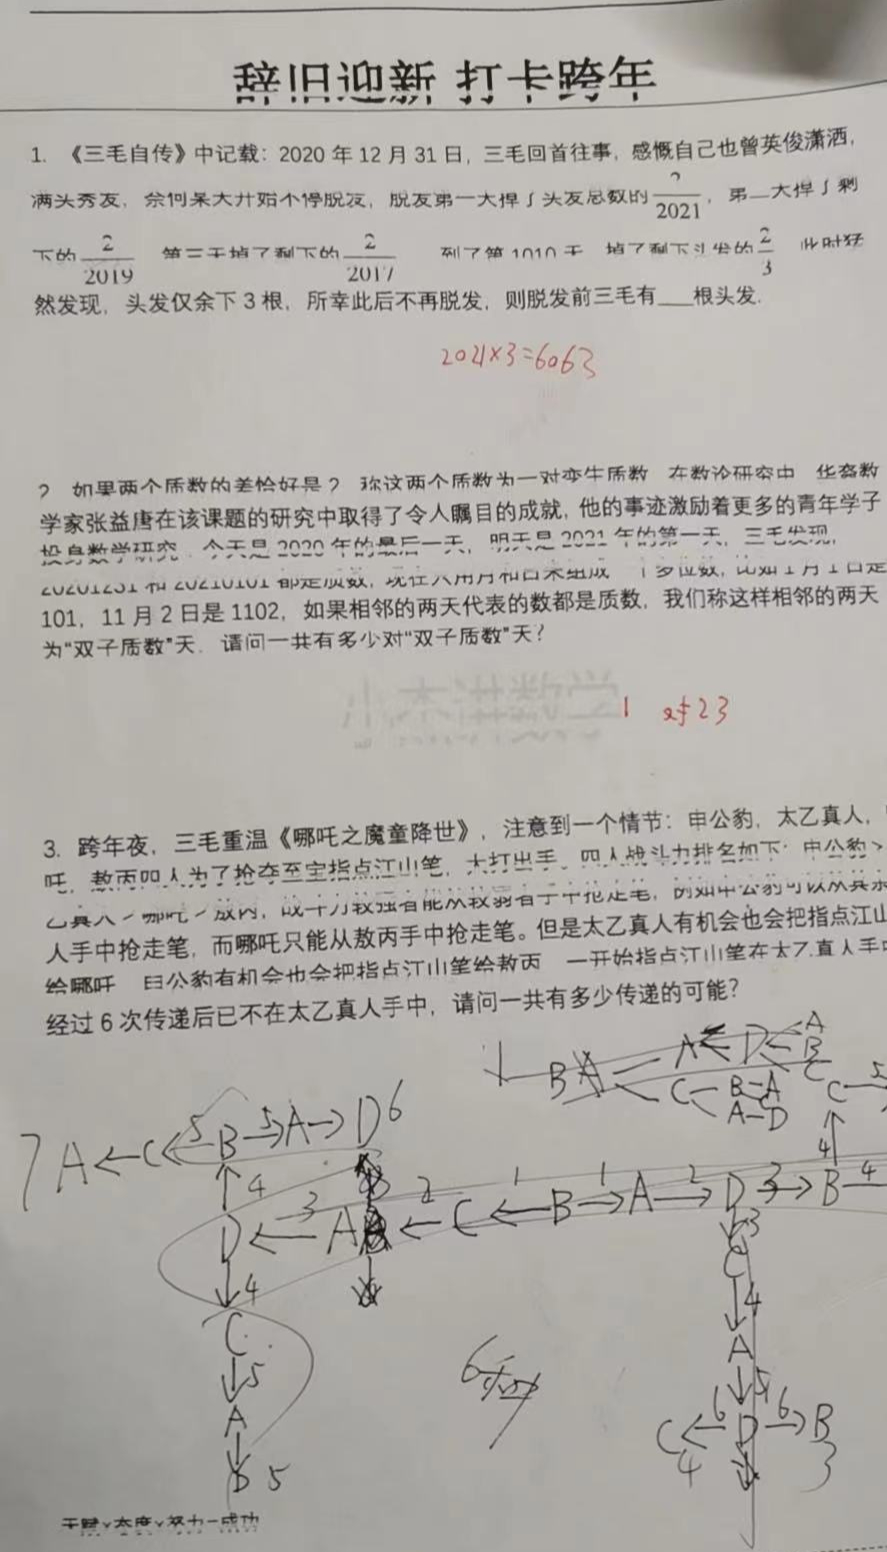 辞旧迎新 打卡跨年
1. 《三毛自传》中记载：2020 年 12 月 31 日，三毛回首往事，感慨自己也曾英俊潇洒，
满头秀发，奈何某天开始不停脱发，脱发第一天掉了头发总数的 2/2021，第二天掉了剩
下的 2/2019 第三天掉了剩下的 2/2017 到了第 1010 天 掉了剩下头发的 2/3 此时猛
然发现，头发仅余下 3 根，所幸此后不再脱发，则脱发前三毛有___根头发.
2021×3=6063
2 如果两个质数的差恰好是 2 称这两个质数为一对孪生质数 在数论研究中 华裔数
学家张益唐在该课题的研究中取得了令人瞩目的成就，他的事迹激励着更多的青年学子
投身数学研究．今天是 2020 年的最后一天，明天是 2021 年的第一天，三毛发现，
20201231 和 20210101 都是质数，现在只用月和日来组成一个多位数，比如 1 月 1 日是
101，11 月 2 日是 1102，如果相邻的两天代表的数都是质数，我们称这样相邻的两天
为“双子质数”天．请问一共有多少对“双子质数”天？
1 23
3. 跨年夜，三毛重温《哪吒之魔童降世》，注意到一个情节：申公豹，太乙真人，
吒，敖丙四人为了抢夺至宝指点江山笔，大打出手，四人战斗力排名如下：申公豹>
乙真人>哪吒>敖丙，战斗力较强者能从较弱者手中抢走笔，例如申公豹可以从其余
人手中抢走笔，而哪吒只能从敖丙手中抢走笔。但是太乙真人有机会也会把指点江山
给哪吒 申公豹有机会也会把指点江山笔给敖丙 一开始指点江山笔在太乙真人手中
经过 6 次传递后已不在太乙真人手中，请问一共有多少传递的可能？
B A A D A
B
C C
C B A
A D
7 A ← C ← 5 B 5 → A → D 6
4
D ← 3 A ← 2 C ← 1 B 1 → A 2 → D 3 → B 4
4
C
5
A
5
3
C
4
A
5
C ← 6 D 6 → B
4 3
6种
天赋×态度×努力=成功